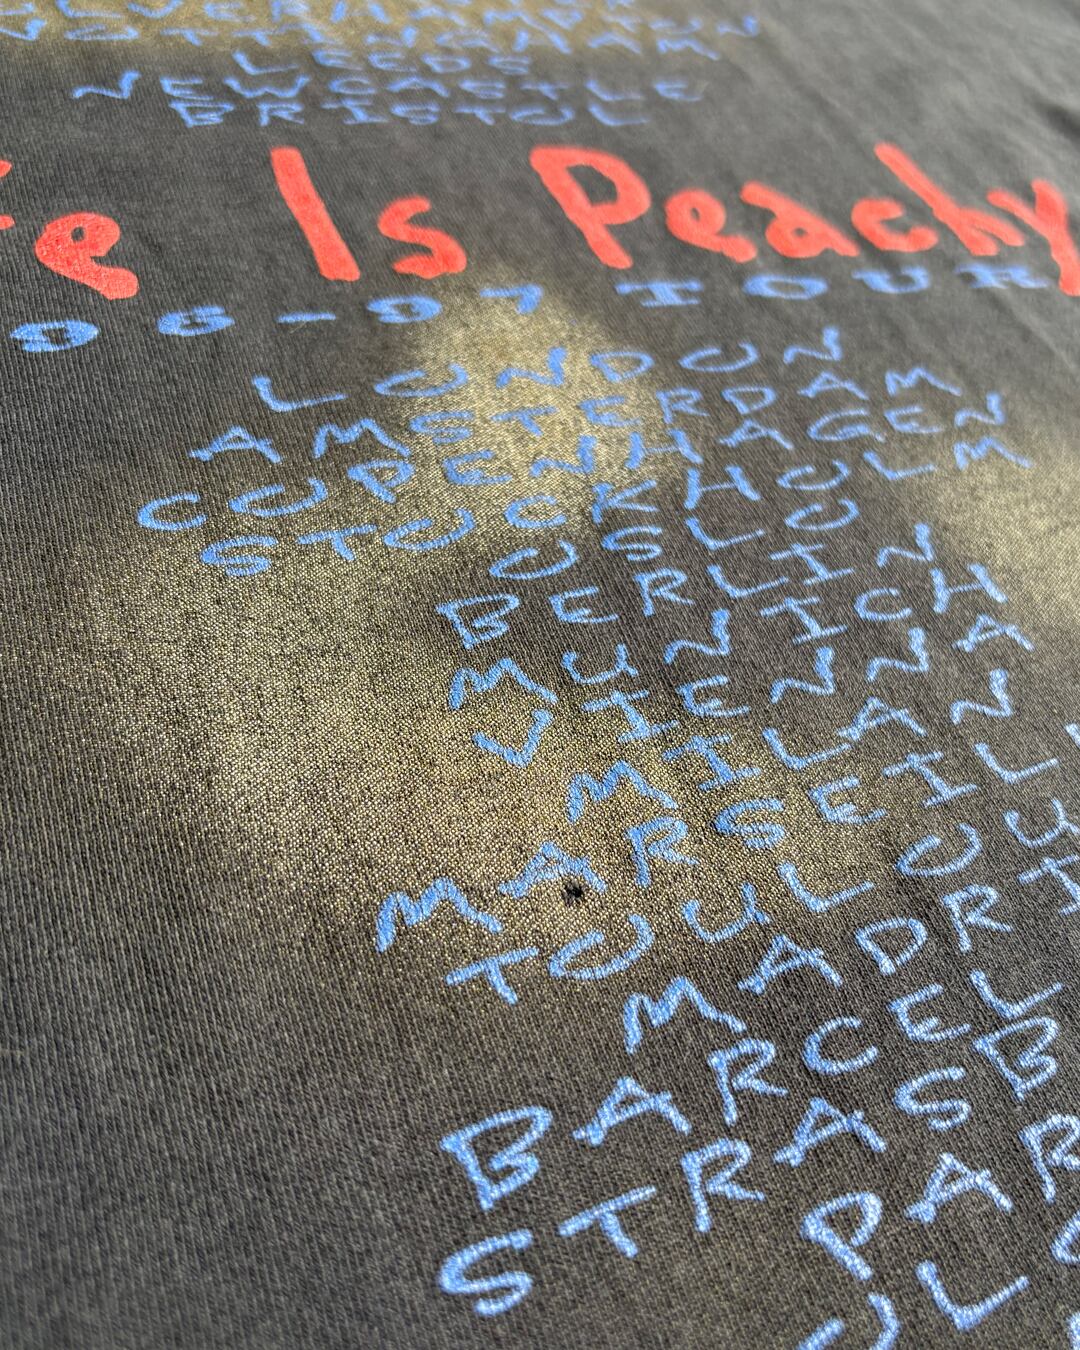 NOTTINGHAM
LEEDS
NEWCASTLE
BRISTOL
Is Peachy
96-97 TOUR
LONDON
AMSTERDAM
COPENHAGEN
STOCKHOLM
OSLO
BERLIN
MUNICH
VIENNA
MILAN
MARSEILL
TOULOU
MADRI
BARCEL
STRASB
PAR